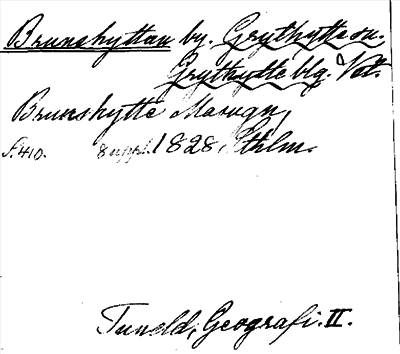 Brunshyttan by. Grythytte sn.
Grythytte blg. Vstm.
Brunshytte Masugn,
s. 410. suppl. 1828, Sthlm.
Tuneld, Geografi. II.